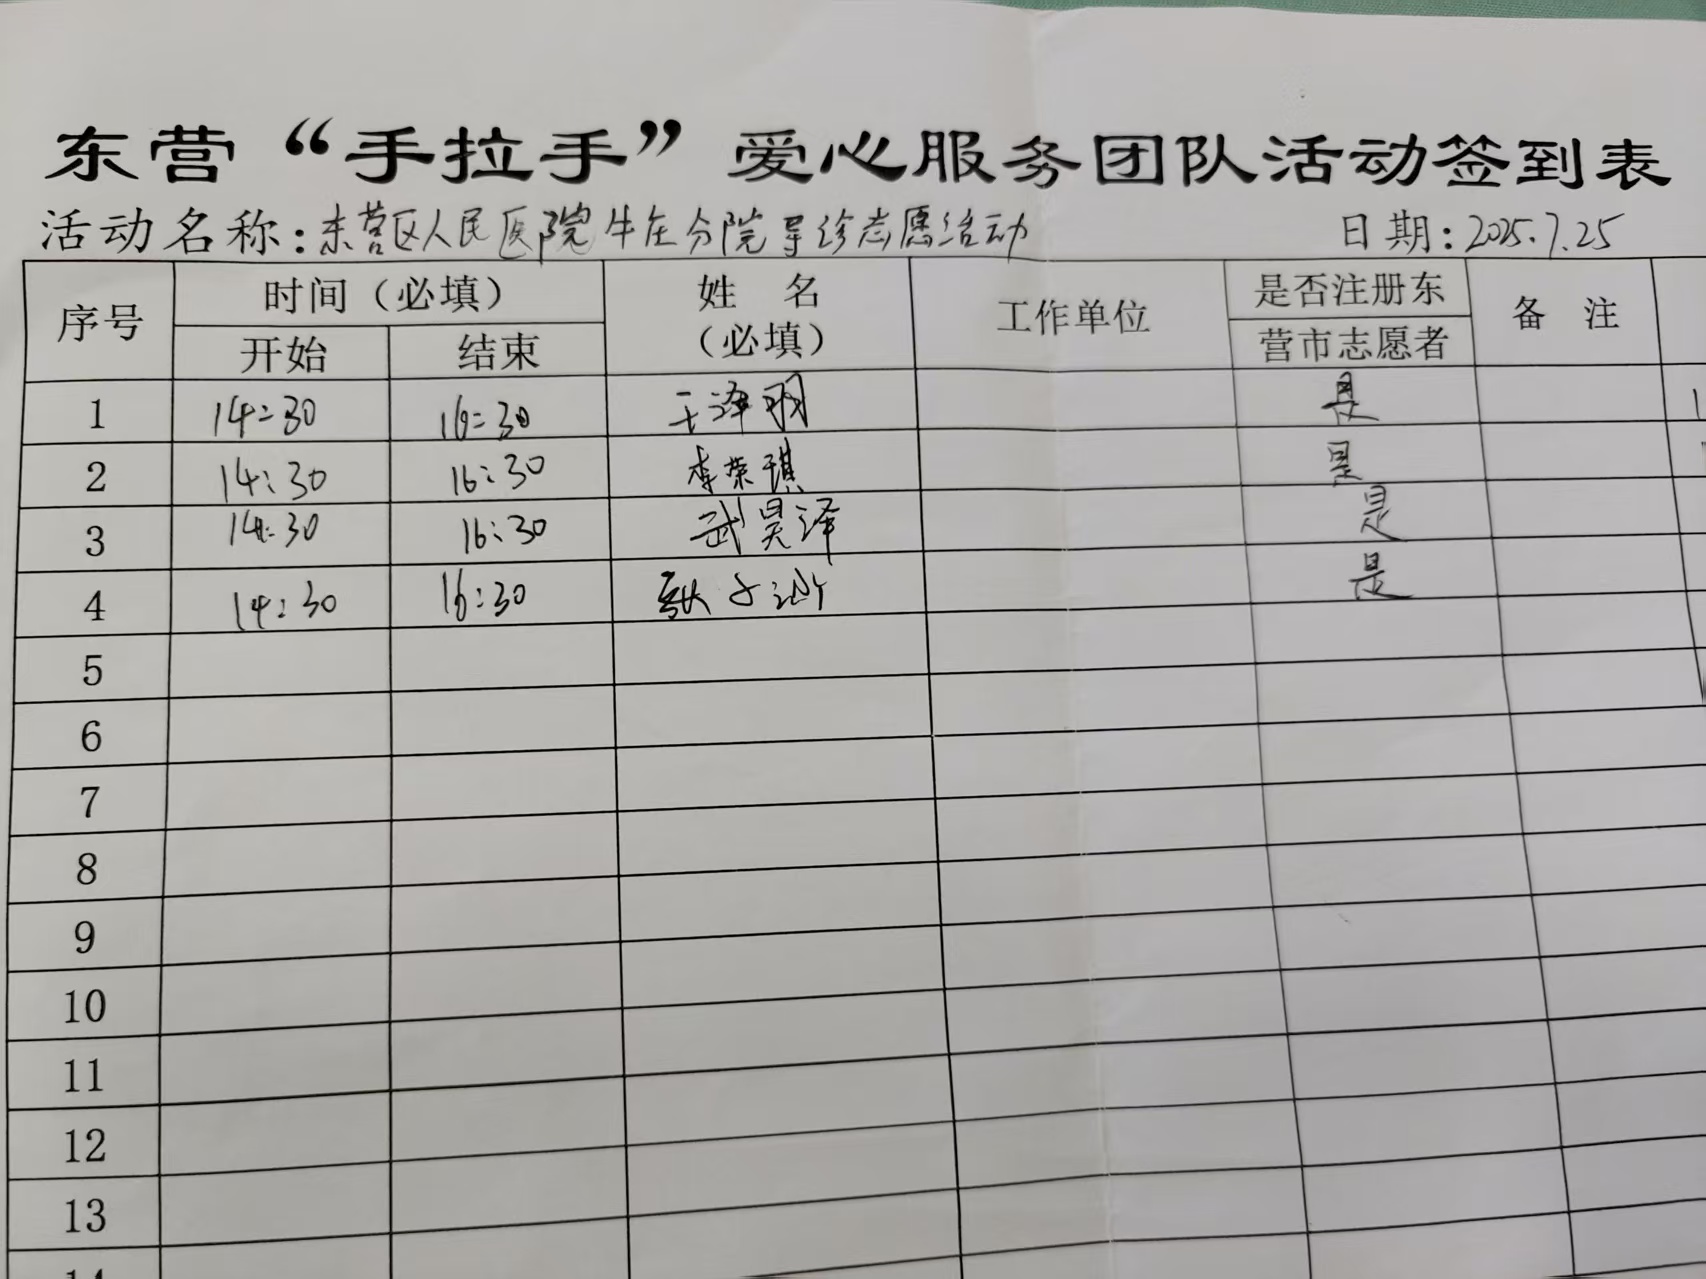 东营“手拉手”爱心服务团队活动签到表
活动名称：东营区人民医院牛庄分院导诊志愿活动 日期：2025.7.25
序号 时间（必填） 姓名（必填） 工作单位 是否注册东营市志愿者 备注
开始 结束
1 14:30 16:30 王泽羽 是
2 14:30 16:30 李荣琪 是
3 14:30 16:30 武昊泽 是
4 14:30 16:30 是
5
6
7
8
9
10
11
12
13
14